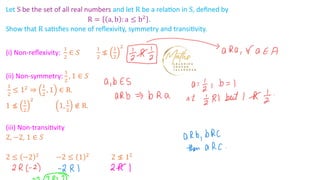 Let S be the set of all real numbers and let R be a relation in S, defined by
R = {(a, b): a ≤ b²}.
Show that R satisfies none of reflexivity, symmetry and transitivity.
(i) Non-reflexivity: 1/2 ∈ S 1/2 ≰ (1/2)² 1/2 R̸ 1/2 a R a, ∀ a ∈ A
Maths
(ii) Non-symmetry: 1/2, 1 ∈ S a, b ∈ S a = 1/2, b = 1
1/2 ≤ 1² ⇒ (1/2, 1) ∈ R. a R b ⇒ b R a 1/2 R 1 but 1 R̸ 1/2.
1 ≰ (1/2)² (1, 1/2) ∉ R.
(iii) Non-transitivity a R b, b R c
2, −2, 1 ∈ S then a R c.
2 ≤ (−2)² −2 ≤ (1)² 2 ≰ 1²
2 R (−2) −2 R 1 2 R̸ 1